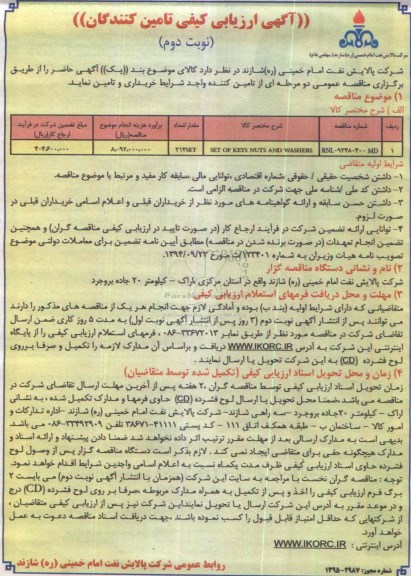 ((آگهی ارزیابی کیفی تامین کنندگان))
(نوبت دوم)
شرکت پالایش نفت امام خمینی (ره) شازند (سهامی عام)
شرکت پالایش نفت امام خمینی (ره)شازند در نظر دارد کالای موضوع بند ((یک)) آگهی حاضر را از طریق
برگزاری مناقصه عمومی دو مرحله ای از تامین کننده واجد شرایط خریداری و تامین نماید.
۱) موضوع مناقصه
الف ) شرح مختصر کالا
ردیف شماره مناقصه شرح مختصر کالا مقدار/تعداد برآورد هزینه انجام موضوع مناقصه(ریال) مبلغ تضمین شرکت در فرآیند ارجاع کار(ریال)
۱ RNL-9248040-MD SET OF KEYS NUTS AND WASHERS ۲۱۲SET ۸,۰۹۲,۰۰۰,۰۰۰ ۴۰۴,۶۰۰,۰۰۰
شرایط اولیه متقاضی
۱- داشتن شخصیت حقیقی / حقوقی ،شماره اقتصادی ،توانایی مالی ،سابقه کار مفید و مرتبط با موضوع مناقصه.
۲- داشتن کد ملی /شناسه ملی جهت شرکت در مناقصه الزامی است.
۳- داشتن حسن سابقه و ارائه گواهینامه های مورد نظر از خریداران قبلی و اعلام اسامی خریداران قبلی در
صورت لزوم.
۴- توانایی ارائه تضمین شرکت در فرآیند ارجاع کار (در صورت تایید در ارزیابی کیفی مناقصه گران) و همچنین
تضمین انجام تعهدات (در صورت برنده شدن در مناقصه) مطابق آیین نامه تضمین برای معاملات دولتی موضوع
تصویب نامه هیات وزیران به شماره ۱۲۳۴۰۲/ت مورخ ۱۳۹۴/۰۹/۲۲.
۲) نام و نشانی دستگاه مناقصه گزار
شرکت پالایش نفت امام خمینی (ره) شازند واقع در استان مرکزی ،اراک – کیلومتر ۲۰ جاده بروجرد
۳) مهلت و محل دریافت فرمهای استعلام ارزیابی کیفی
متقاضیانی که دارای شرایط اولیه (بند ب) بوده و آمادگی لازم جهت انجام هر یک از مناقصه های مذکور را دارند
می توانند پس از انتشار آگهی نوبت دوم (۳ روز پس از انتشار آگهی نوبت اول) به مدت ۵ روز کاری ضمن ارسال
تقاضای شرکت در مناقصه مورد نظر از طریق نمابر ۳۳۶۷۲۰۱۳-۰۸۶، فرمهای استعلام ارزیابی کیفی را از پایگاه
اینترنتی این شرکت به آدرس WWW.IKORC.IR دریافت و براساس آن مدارک لازمه را تکمیل و صرفا برروی
لوح فشرده (CD) به این شرکت تحویل یا ارسال نمایند.
۴) زمان و محل تحویل اسناد ارزیابی کیفی (تکمیل شده توسط متقاضیان)
زمان تحویل اسناد ارزیابی کیفی توسط مناقصه گران ۲ هفته پس از آخرین مهلت ارسال تقاضای شرکت در
مناقصه می باشد ،ضمنا محل تحویل یا ارسال لوح فشرده (CD) حاوی فرمها و مدارک تکمیل شده ، به نشانی
اراک – کیلومتر ۲۰جاده بروجرد –سه راهی شازند– شرکت پالایش نفت امام خمینی (ره) شازند –اداره تدارکات و
امور کالا – ساختمان ب – طبقه همکف اتاق ۱۱۱ – کد پستی ۴۱۱۱۱-۳۸۶۷۱ تلفن ۳۳۴۹۲۹۰۹-۰۸۶ می باشد.
بدیهی است به مدارک ارسالی بعد از مهلت مقرر ترتیب اثر داده نخواهد شد ضمنا دادن پیشنهاد و ارائه اسناد و
مدارک هیچگونه حقی برای متقاضی ایجاد نمی کند . لازم بذکر است دستگاه مناقصه گزار پس از وصول لوح
فشرده حاوی اسناد ارزیابی کیفی ظرف مدت یکماه نسبت به اعلام اسامی واجدین شرایط اقدام خواهد نمود.
توجه : مناقصه گران نخست با مراجعه به سایت این شرکت (همزمان با انتشار آگهی نوبت دوم) می بایست ۲
برگ فرم ارزیابی کیفی را اخذ و پس از تکمیل به همراه مدارک مربوطه ،صرفا بر روی لوح فشرده (CD) درج
و در موعد مقرر به آدرس این شرکت ارسال یا تحویل نمایند.این شرکت نیز پس از ارزیابی کیفی متقاضیان ،
از شرکتهایی که حداقل امتیاز قابل قبول را کسب نموده باشند ،جهت دریافت اسناد مناقصه دعوت به عمل
خواهد آورد.
آدرس اینترنتی : WWW.IKORC.IR
روابط عمومی شرکت پالایش نفت امام خمینی (ره) شازند
شماره مجوز: ۱۳۹۵-۲۹۸۷